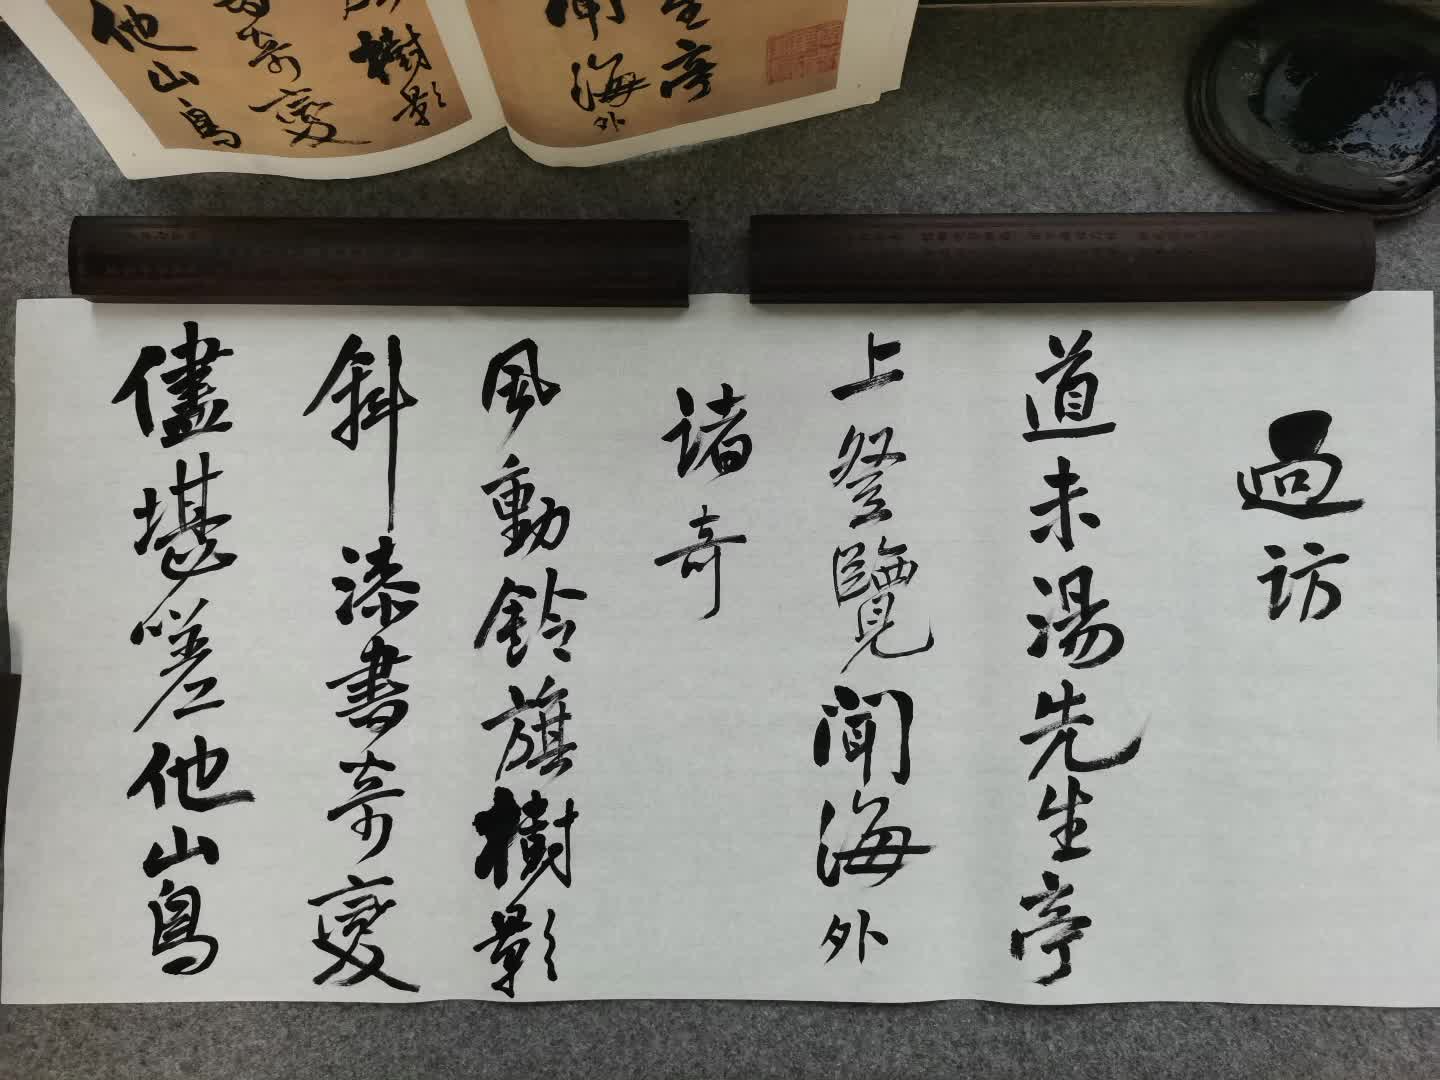 生亭
聞海外
樹影
奇變
他山鳥
過訪
道未湯先生亭
上登覽聞海外
諸奇
風動鈴旗樹影
斜漆書奇變
儘堪嗟他山鳥